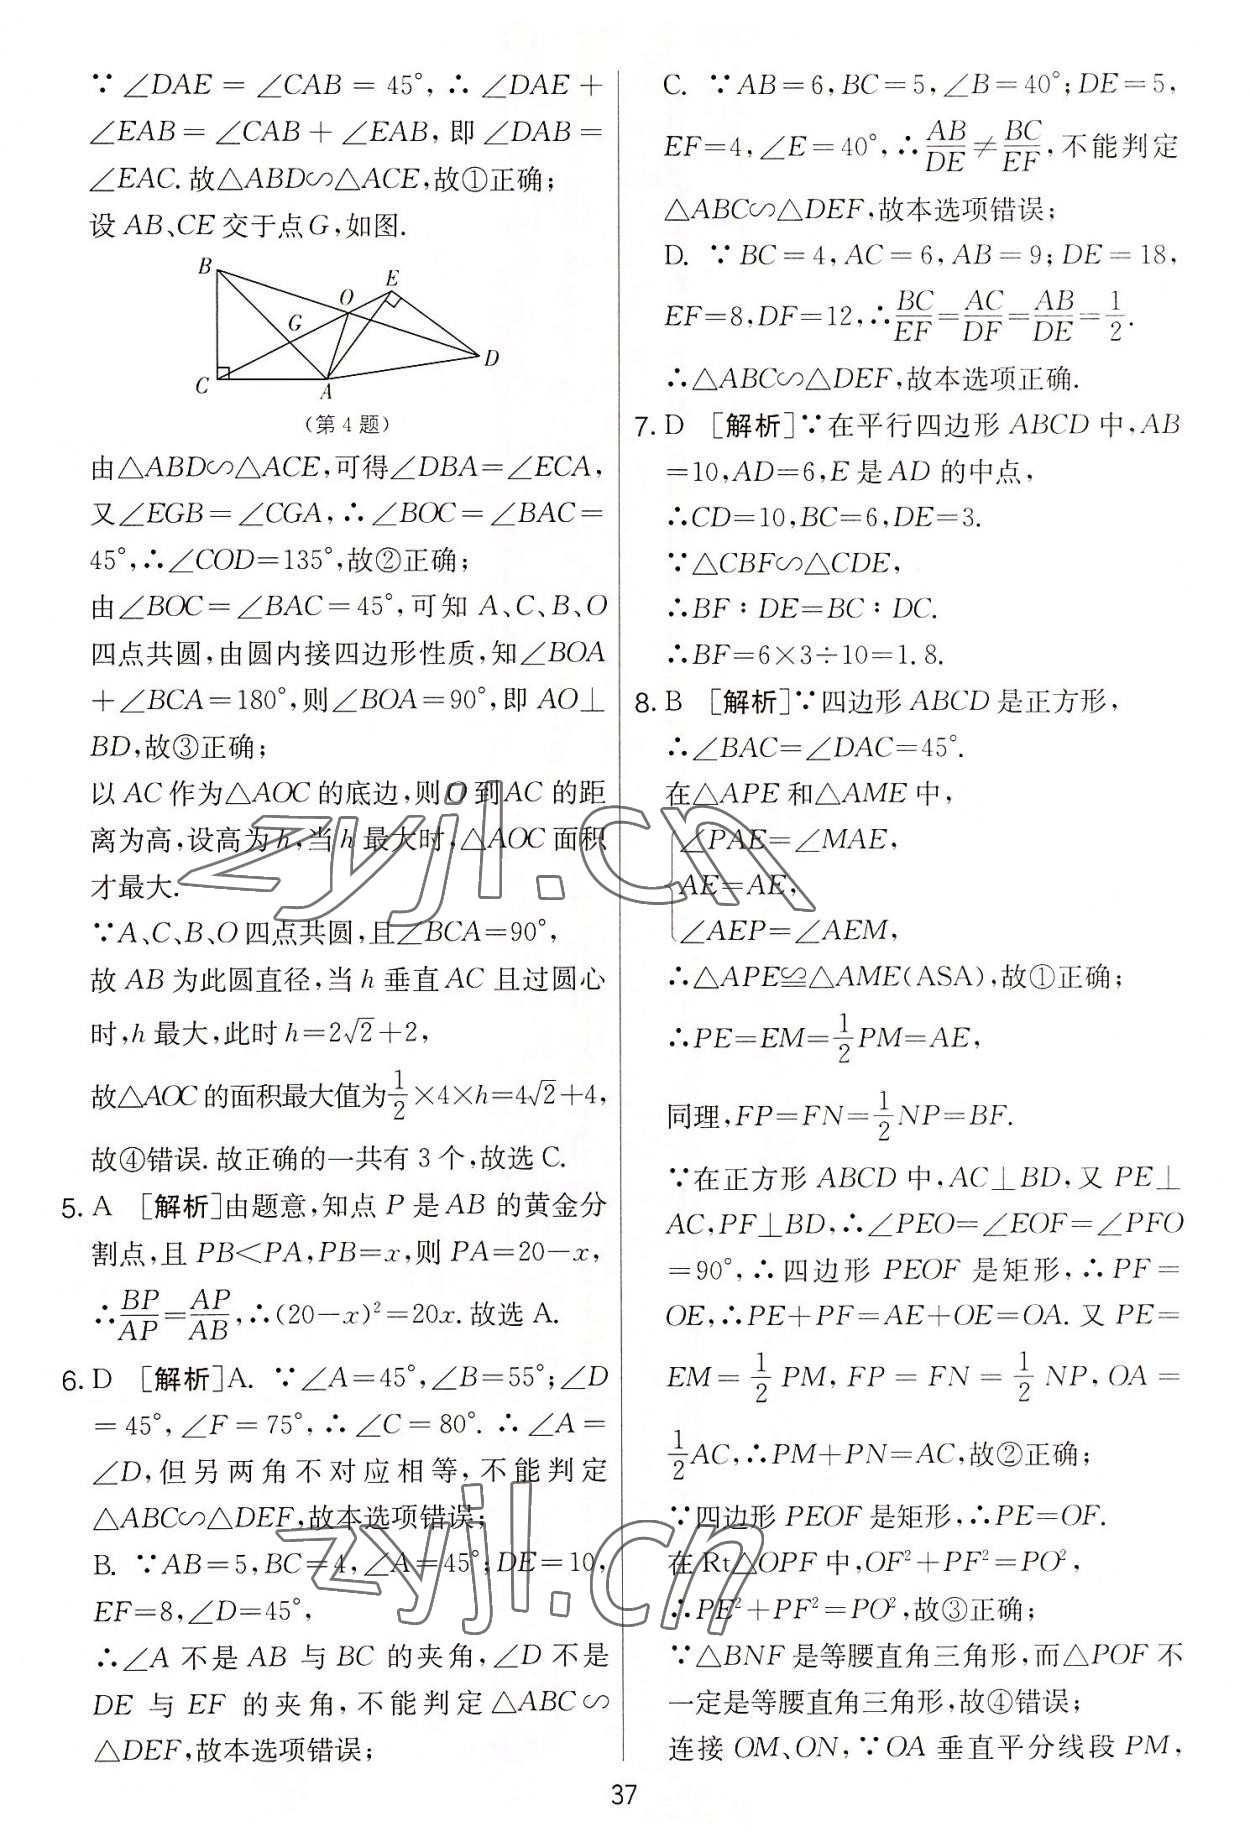 ∵∠DAE=∠CAB=45°,∴∠DAE+
∠EAB=∠CAB+∠EAB,即∠DAB=
∠EAC.故△ABD∽△ACE,故①正确;
设AB、CE交于点G,如图.
B
E
O
G
D
C
A
(第4题)
由△ABD∽△ACE,可得∠DBA=∠ECA,
又∠EGB=∠CGA,∴∠BOC=∠BAC=
45°,∴∠COD=135°,故②正确;
由∠BOC=∠BAC=45°,可知A、C、B、O
四点共圆,由圆内接四边形性质,知∠BOA
+∠BCA=180°,则∠BOA=90°,即AO⊥
BD,故③正确;
以AC作为△AOC的底边,则O到AC的距
离为高,设高为h,当h最大时,△AOC面积
才最大.
∵A、C、B、O四点共圆,且∠BCA=90°,
故AB为此圆直径,当h垂直AC且过圆心
时,h最大,此时h=2√2+2,
故△AOC的面积最大值为1/2×4×h=4√2+4,
故④错误.故正确的一共有3个,故选C.
5. A [解析]由题意,知点P是AB的黄金分
割点,且PB<PA,PB=x,则PA=20-x,
∴BP/AP=AP/AB,∴(20-x)²=20x.故选A.
6. D [解析]A. ∵∠A=45°,∠B=55°;∠D
=45°,∠F=75°,∴∠C=80°.∴∠A=
∠D,但另两角不对应相等,不能判定
△ABC∽△DEF,故本选项错误;
B. ∵AB=5,BC=4,∠A=45°;DE=10,
EF=8,∠D=45°,
∴∠A不是AB与BC的夹角,∠D不是
DE与EF的夹角,不能判定△ABC∽
△DEF,故本选项错误;
C. ∵AB=6,BC=5,∠B=40°;DE=5,
EF=4,∠E=40°,∴AB/DE≠BC/EF,不能判定
△ABC∽△DEF,故本选项错误;
D. ∵BC=4,AC=6,AB=9;DE=18,
EF=8,DF=12,∴BC/EF=AC/DF=AB/DE=1/2.
∴△ABC∽△DEF,故本选项正确.
7. D [解析]∵在平行四边形ABCD中,AB
=10,AD=6,E是AD的中点,
∴CD=10,BC=6,DE=3.
∵△CBF∽△CDE,
∴BF∶DE=BC∶DC.
∴BF=6×3÷10=1.8.
8. B [解析]∵四边形ABCD是正方形,
∴∠BAC=∠DAC=45°.
在△APE和△AME中,
∠PAE=∠MAE,
AE=AE,
∠AEP=∠AEM,
∴△APE≌△AME(ASA),故①正确;
∴PE=EM=1/2PM=AE,
同理,FP=FN=1/2NP=BF.
∵在正方形ABCD中,AC⊥BD,又PE⊥
AC,PF⊥BD,∴∠PEO=∠EOF=∠PFO
=90°,∴四边形PEOF是矩形,∴PF=
OE,∴PE+PF=AE+OE=OA.又PE=
EM=1/2PM,FP=FN=1/2NP,OA=
1/2AC,∴PM+PN=AC,故②正确;
∵四边形PEOF是矩形,∴PE=OF.
在Rt△OPF中,OF²+PF²=PO²,
∴PE²+PF²=PO²,故③正确;
∵△BNF是等腰直角三角形,而△POF不
一定是等腰直角三角形,故④错误;
连接OM、ON,∵OA垂直平分线段PM,
37
zyjl.cn
zyjl.cn